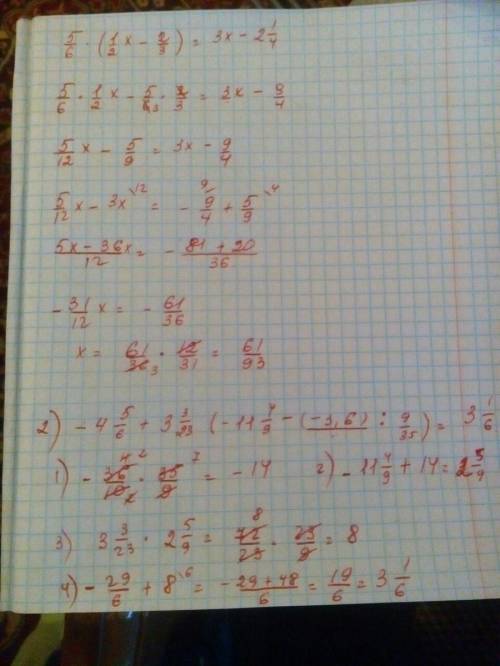 5/6 · (1/2 x − 2/3) = 3x − 2 1/4
5/6 · 1/2 x − 5/6 3 · 2/3 = 3x − 9/4
5/12 x − 5/9 = 3x − 9/4
5/12 x − 3x \12 = − 9/4 9/ + 5/9 \4
5x − 36x / 12 = − 81 + 20 / 36
− 31/12 x = − 61/36
x = 61/36 3 · 12/31 = 61/93
2) − 4 5/6 + 3 3/23 (− 11 4/9 − (−3,6) : 9/35) = 3 1/6
1) − 36/10 · 35/9 = −14 2) − 11 4/9 + 14 = 2 5/9
3) 3 3/23 · 2 5/9 = 72/23 8 · 23/9 = 8
4) − 29/6 + 8 \6 = − 29 + 48 / 6 = 19/6 = 3 1/6